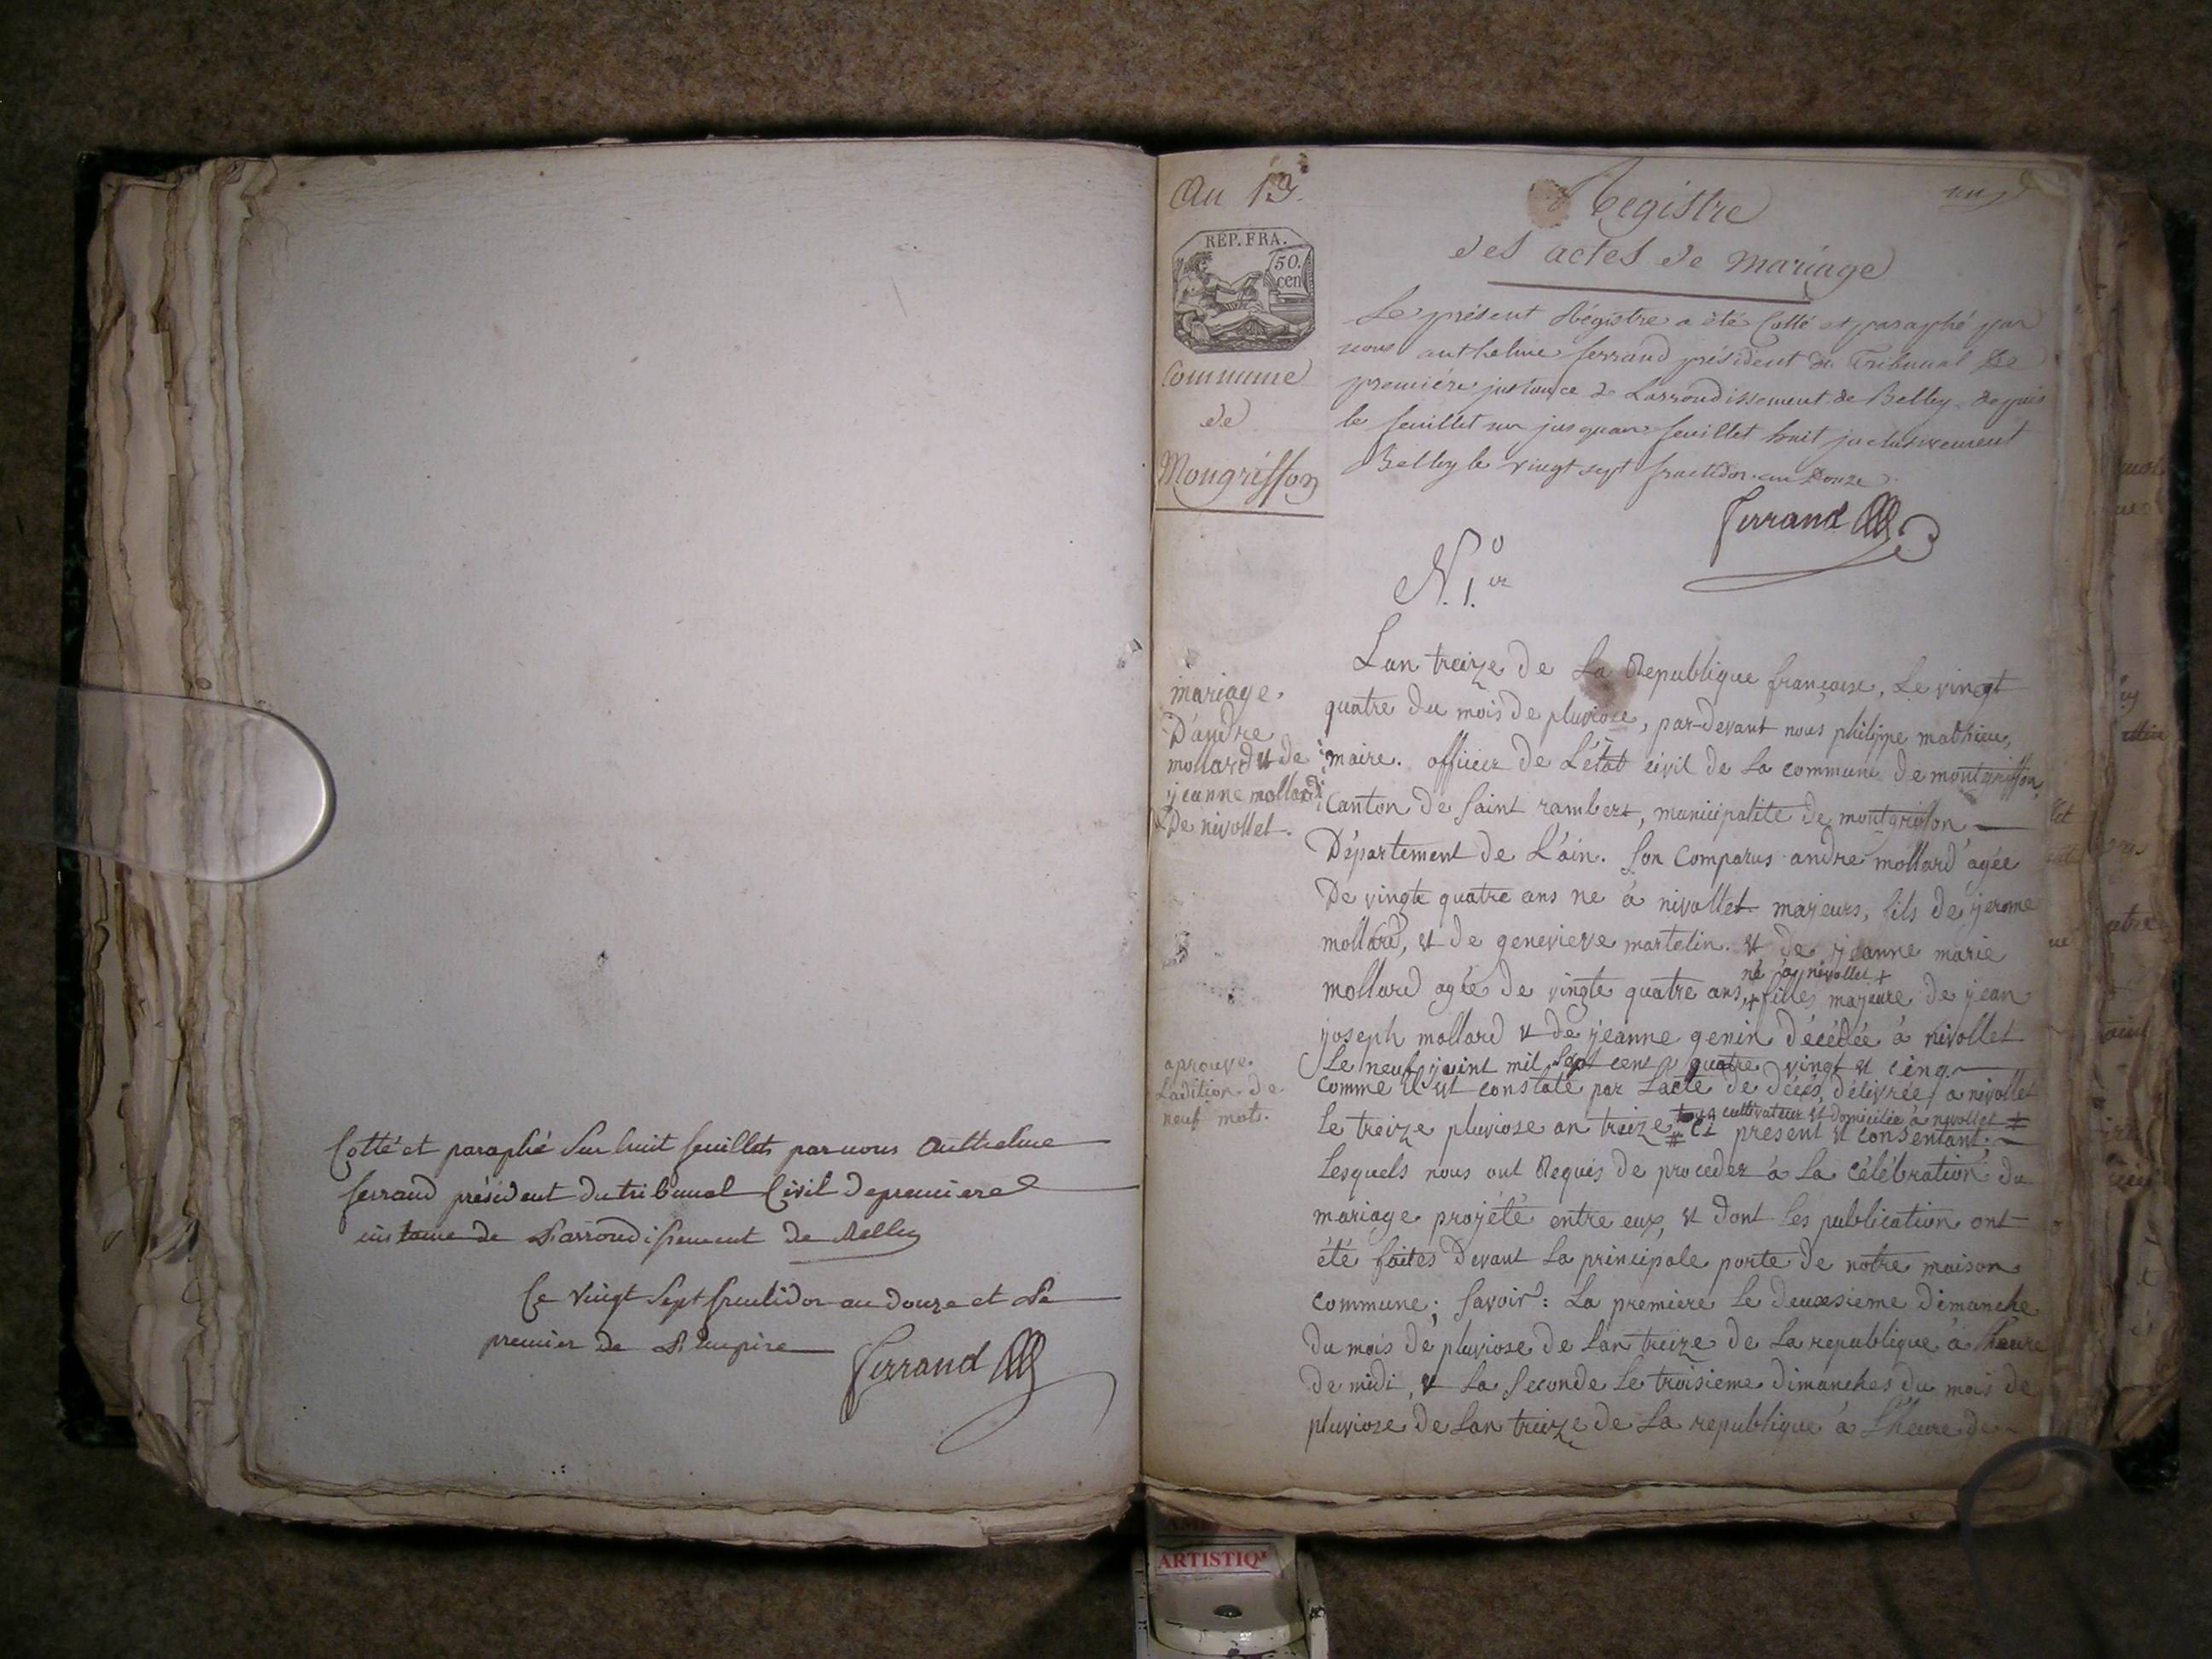 Cotté et paraphé Sur huit feuillets par nous Anthelme
ferrand président du tribunal Civil de premiere
instance de L'arrondissement de Belley
Ce vingt Sept fructidor an douze et Le
premier de L'Empire
Ferrand
An 13.
REP. FRA.
50.
cen
Commune
de
Mongriffon
un
Registre
des actes de Mariage
Le présent Régistre a été Cotté et paraphé par
nous anthelme ferrand président du Tribunal de
première instance de L'arrondissement de Belley depuis
le feuillet un jusquau feuillet huit inclusivement
Belley le vingt sept fructidor an Douze
Ferrand
N.º 1.er
mariage.
D'andre
mollard et de
jeanne mollard
De nivollet.
Lan treize de La Republique françoise, Le vingt
quatre du mois de pluviose, par-devant nous philippe mathieu,
maire. officier de L'état civil de La commune de montgriffon,
Canton de Saint rambert, municipalite de montgriffon
Département de L'ain. Son Comparus andre mollard agée
De vingte quatre ans ne à nivollet majeurs, fils de jerome
mollard, et de genevieve martelin. et de jeanne marie
né à nivollet +
mollard agée de vingte quatre ans, + filles majeure de jean
joseph mollard et de jeanne genin décédée à nivollet
Le neuf juint mil Sept cent quatre vingt et cinq
aprouve
Ladition de
neuf mot.
comme il est constaté par Lacte de décés, délivrée a nivollet
tous cultivateur et domiciliée à nivollet #
Le treize pluviose an treize # Ci present et consentant.
Lesquels nous ont Requis de proceder à La célébration du
mariage projété entre eux, et dont les publication ont
été faites devant La principale porte de notre maison
commune; Savoir: La premiere Le deuxsieme dimanche
du mois de pluviose de Lan treize de La republique à Lheure
de midi, et La Seconde Le troisieme dimanches du mois de
pluviose de Lan treize de La republique à L'heure de
ARTISTIQ